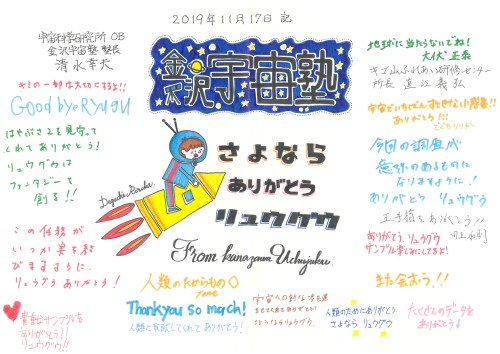 2019年11月17日 記
宇宙科学研究所 OB
金沢宇宙塾 塾長
清水幸夫
金沢宇宙塾
地球に当たらないでね!
キゴ山ふれあい研修センター
所長 直江義弘
Good bye RYUGU
はやぶさ2を見守って
くれてありがとう!
リュウグウは
ファンタジーを
創る!!
この任務が
いつか実を結び
びますように.
リュウグウありがとう!
貴重なサンプルを
ありがとう!!
リュウグウ!!
さよなら
ありがとう
リュウグウ
From kanazawa Uchujuku.
人類のたからもの
Thank you so much!
人類に貢献してくれてありがとう!
さよならリュウグウ.
人類のためにありがとう
さよなら リュウグウ
ありがとう!!!
今回の調査が
意味のあるものに
なりますように!
ありがとう リュウグウ
ありがとう、リュウグウ
サンプル楽しみにしてるよ!
また会おう!!
たくさんのデータを
ありがとう!